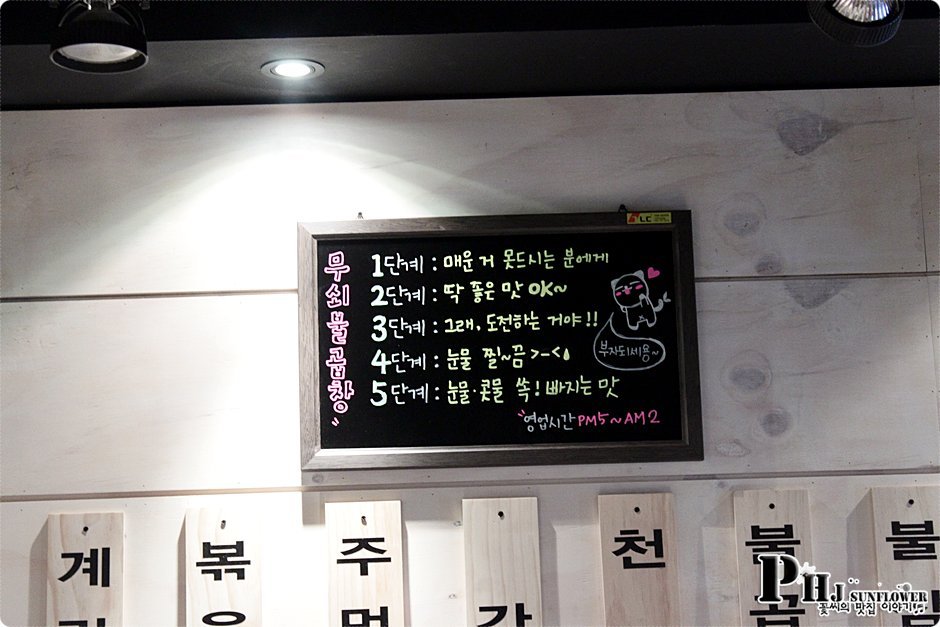 LC
무쇠불곱창~
1단계 : 매운거 못드시는 분에게
2단계 : 딱 좋은 맛 OK~
3단계 : 그래, 도전하는 거야!!
4단계 : 눈물 찔~끔 >-<
5단계 : 눈물·콧물 쏙! 빠지는 맛
부자되세용~
영업시간 PM5~AM2
계
볶
주
천
불
불
곱
PHJ SUNFLOWER
꽃씨의 맛집 이야기